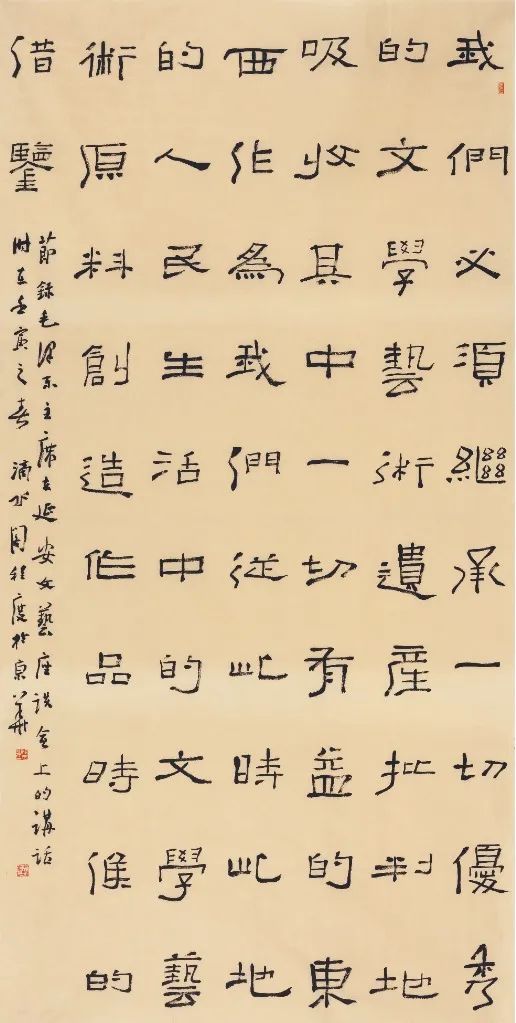 我們必須繼承一切優秀
的文學藝術遺產批判地
吸收其中一切有益的東
西作為我們從此時此地
的人民生活中的文學藝
術原料創造作品時候的
借鑒
節錄毛澤東主席在延安文藝座談會上的講話
時在壬寅之春 周程度於京華